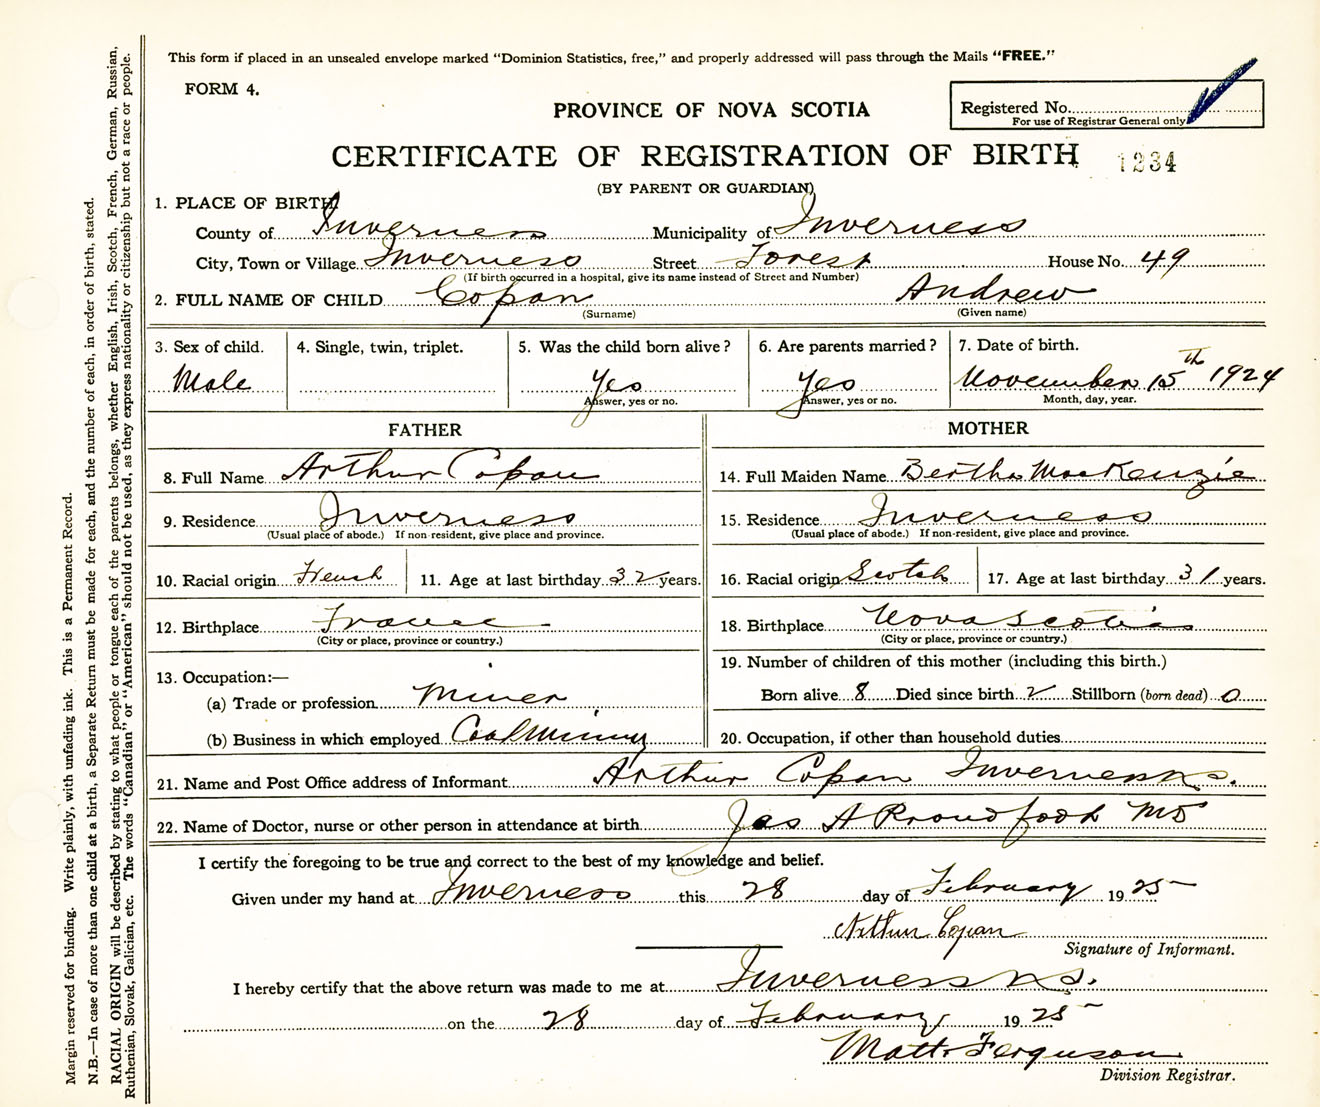 This form if placed in an unsealed envelope marked "Dominion Statistics, free," and properly addressed will pass through the Mails "FREE."
FORM 4.
PROVINCE OF NOVA SCOTIA
Registered No.
For use of Registrar General only
CERTIFICATE OF REGISTRATION OF BIRTH 1234
(BY PARENT OR GUARDIAN)
1. PLACE OF BIRTH
County of Inverness Municipality of Inverness
City, Town or Village Inverness Street Forest House No. 49
(If birth occurred in a hospital, give its name instead of Street and Number)
2. FULL NAME OF CHILD Copan Andrew
(Surname) (Given name)
3. Sex of child. 4. Single, twin, triplet. 5. Was the child born alive? 6. Are parents married? 7. Date of birth.
Male Yes Yes November 15th 1924
Answer, yes or no. Answer, yes or no. Month, day, year.
FATHER MOTHER
8. Full Name Arthur Copan 14. Full Maiden Name Bertha MacKenzie
9. Residence Inverness 15. Residence Inverness
(Usual place of abode.) If non-resident, give place and province. (Usual place of abode.) If non-resident, give place and province.
10. Racial origin French 11. Age at last birthday 32 years. 16. Racial origin Scotch 17. Age at last birthday 31 years.
12. Birthplace France 18. Birthplace Nova Scotia
(City or place, province or country.) (City or place, province or country.)
13. Occupation:— 19. Number of children of this mother (including this birth.)
(a) Trade or profession Miner Born alive 8 Died since birth 2 Stillborn (born dead) 0
(b) Business in which employed Coal Mining 20. Occupation, if other than household duties
21. Name and Post Office address of Informant Arthur Copan Inverness N.S.
22. Name of Doctor, nurse or other person in attendance at birth Jas A Proudfoot MD
I certify the foregoing to be true and correct to the best of my knowledge and belief.
Given under my hand at Inverness this 28 day of February 1925
Arthur Copan
Signature of Informant.
I hereby certify that the above return was made to me at Inverness N.S.
on the 28 day of February 1925
Matt. Ferguson
Division Registrar.
Margin reserved for binding. Write plainly, with unfading ink. This is a Permanent Record.
N.B.—In case of more than one child at a birth, a Separate Return must be made for each, and the number of each, in order of birth, stated.
RACIAL ORIGIN will be described by stating to what people or tongue each of the parents belongs, whether English, Irish, Scotch, French, German, Russian,
Ruthenian, Slovak, Galician, etc. The words "Canadian" or "American" should not be used, as they express nationality or citizenship but not a race or people.